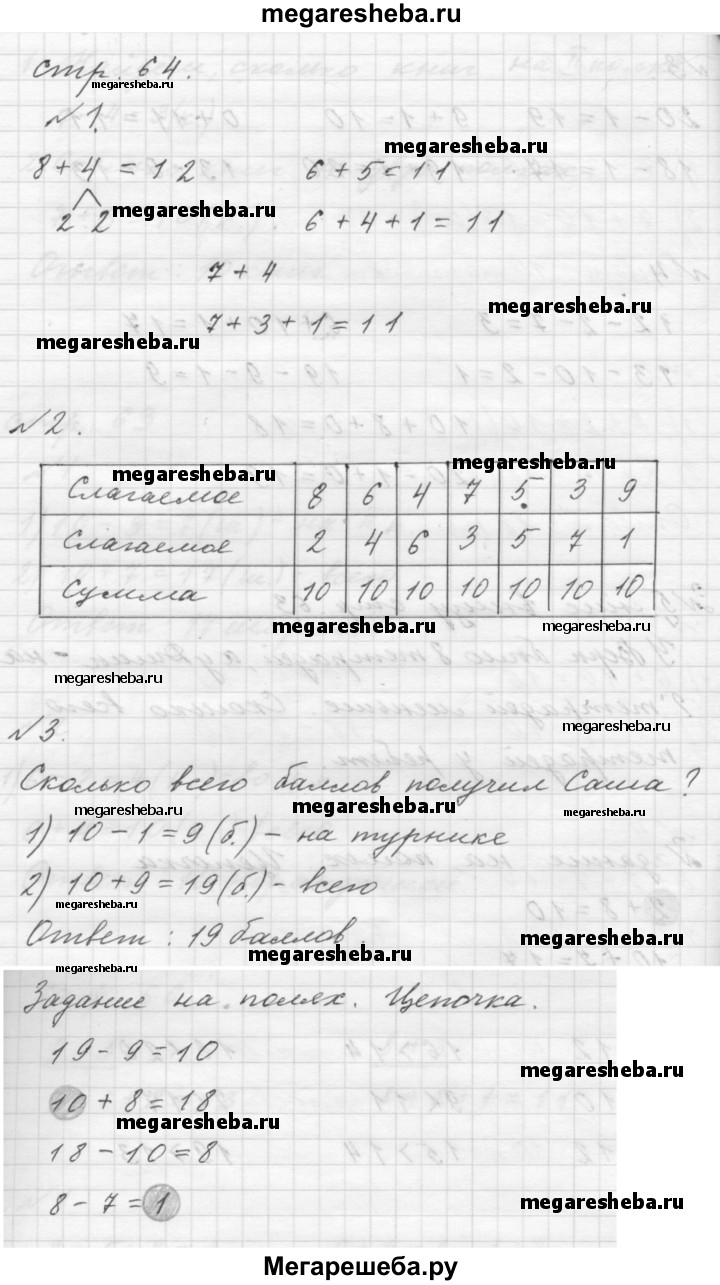 megaresheba.ru
стр. 64.
megaresheba.ru
№1.
megaresheba.ru
8 + 4 = 12 6 + 5 = 11
2 2 megaresheba.ru 6 + 4 + 1 = 11
7 + 4
megaresheba.ru
7 + 3 + 1 = 11
megaresheba.ru
№2.
megaresheba.ru megaresheba.ru
Слагаемое 8 6 4 7 5 3 9
Слагаемое 2 4 6 3 5 7 1
Сумма 10 10 10 10 10 10 10
megaresheba.ru megaresheba.ru
megaresheba.ru
megaresheba.ru
№3.
Сколько всего баллов получил Саша?
megaresheba.ru megaresheba.ru megaresheba.ru
1) 10 - 1 = 9 (б.) - на турнике
2) 10 + 9 = 19 (б.) - всего
megaresheba.ru
Ответ: 19 баллов.
megaresheba.ru
megaresheba.ru
megaresheba.ru
Задание на полях. Цепочка.
19 - 9 = 10
megaresheba.ru
10 + 8 = 18
megaresheba.ru
18 - 10 = 8
8 - 7 = 1
megaresheba.ru
Мегарешеба.ру